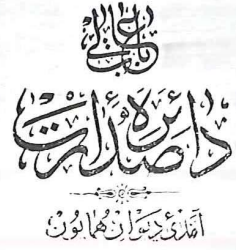 باب عالی
دائرهٔ صدارت
آمدئ ديوان همايون